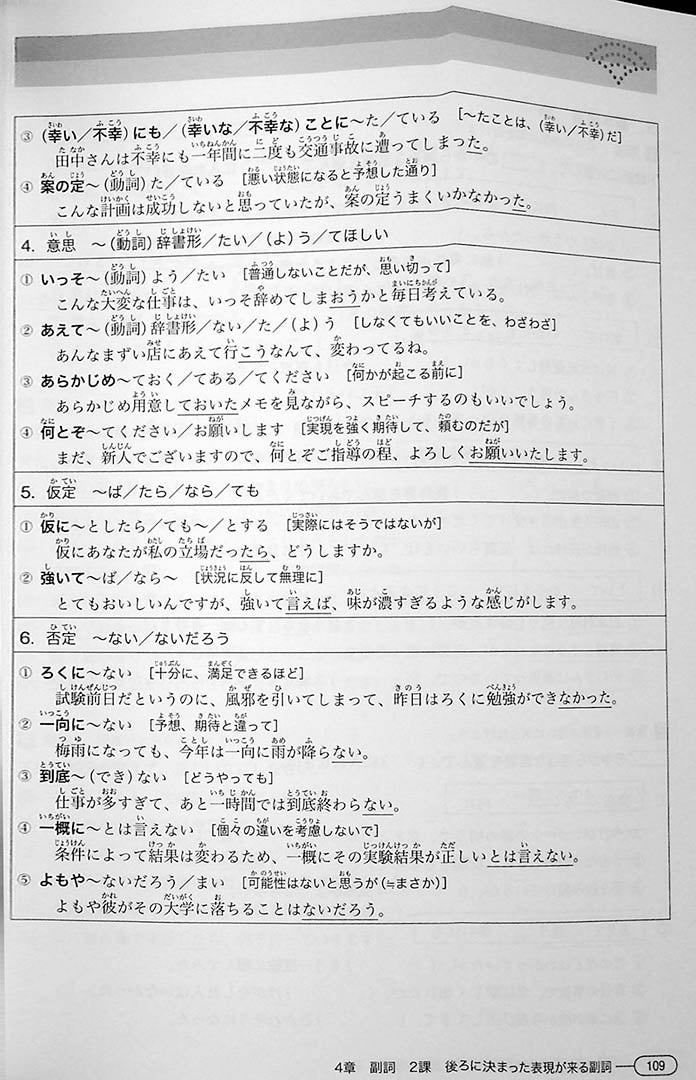 ③ (幸い／不幸)にも／(幸いな／不幸な)ことに～た／ている ［～たことは、(幸い／不幸)だ］
田中さんは不幸にも一年間に二度も交通事故に遭ってしまった。
④ 案の定～(動詞)た／ている ［悪い状態になると予想した通り］
こんな計画は成功しないと思っていたが、案の定うまくいかなかった。
4. 意思 ～(動詞)辞書形／たい／(よ)う／てほしい
① いっそ～(動詞)よう／たい ［普通しないことだが、思い切って］
こんな大変な仕事は、いっそ辞めてしまおうかと毎日考えている。
② あえて～(動詞)辞書形／ない／た／(よ)う ［しなくてもいいことを、わざわざ］
あんなまずい店にあえて行こうなんて、変わってるね。
③ あらかじめ～ておく／てある／てください ［何かが起こる前に］
あらかじめ用意しておいたメモを見ながら、スピーチするのもいいでしょう。
④ 何とぞ～てください／お願いします ［実現を強く期待して、頼むのだが］
まだ、新人でございますので、何とぞご指導の程、よろしくお願いいたします。
5. 仮定 ～ば／たら／なら／ても
① 仮に～としたら／ても～／とする ［実際にはそうではないが］
仮にあなたが私の立場だったら、どうしますか。
② 強いて～ば／なら～ ［状況に反して無理に］
とてもおいしいんですが、強いて言えば、味が濃すぎるような感じがします。
6. 否定 ～ない／ないだろう
① ろくに～ない ［十分に、満足できるほど］
試験前日だというのに、風邪を引いてしまって、昨日はろくに勉強ができなかった。
② 一向に～ない ［予想、期待と違って］
梅雨になっても、今年は一向に雨が降らない。
③ 到底～(でき)ない ［どうやっても］
仕事が多すぎて、あと一時間では到底終わらない。
④ 一概に～とは言えない ［個々の違いを考慮しないで］
条件によって結果は変わるため、一概にその実験結果が正しいとは言えない。
⑤ よもや～ないだろう／まい ［可能性はないと思うが(≒まさか)］
よもや彼がその大学に落ちることはないだろう。
4章 副詞 2課 後ろに決まった表現が来る副詞 109